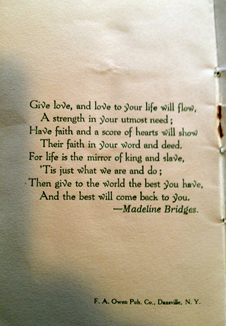 Give love, and love to your life will flow,
A strength in your utmost need;
Have faith and a score of hearts will show
Their faith in your word and deed.
For life is the mirror of king and slave,
'Tis just what we are and do;
Then give to the world the best you have,
And the best will come back to you.
—Madeline Bridges.
F. A. Owen Pub. Co., Dansville, N. Y.